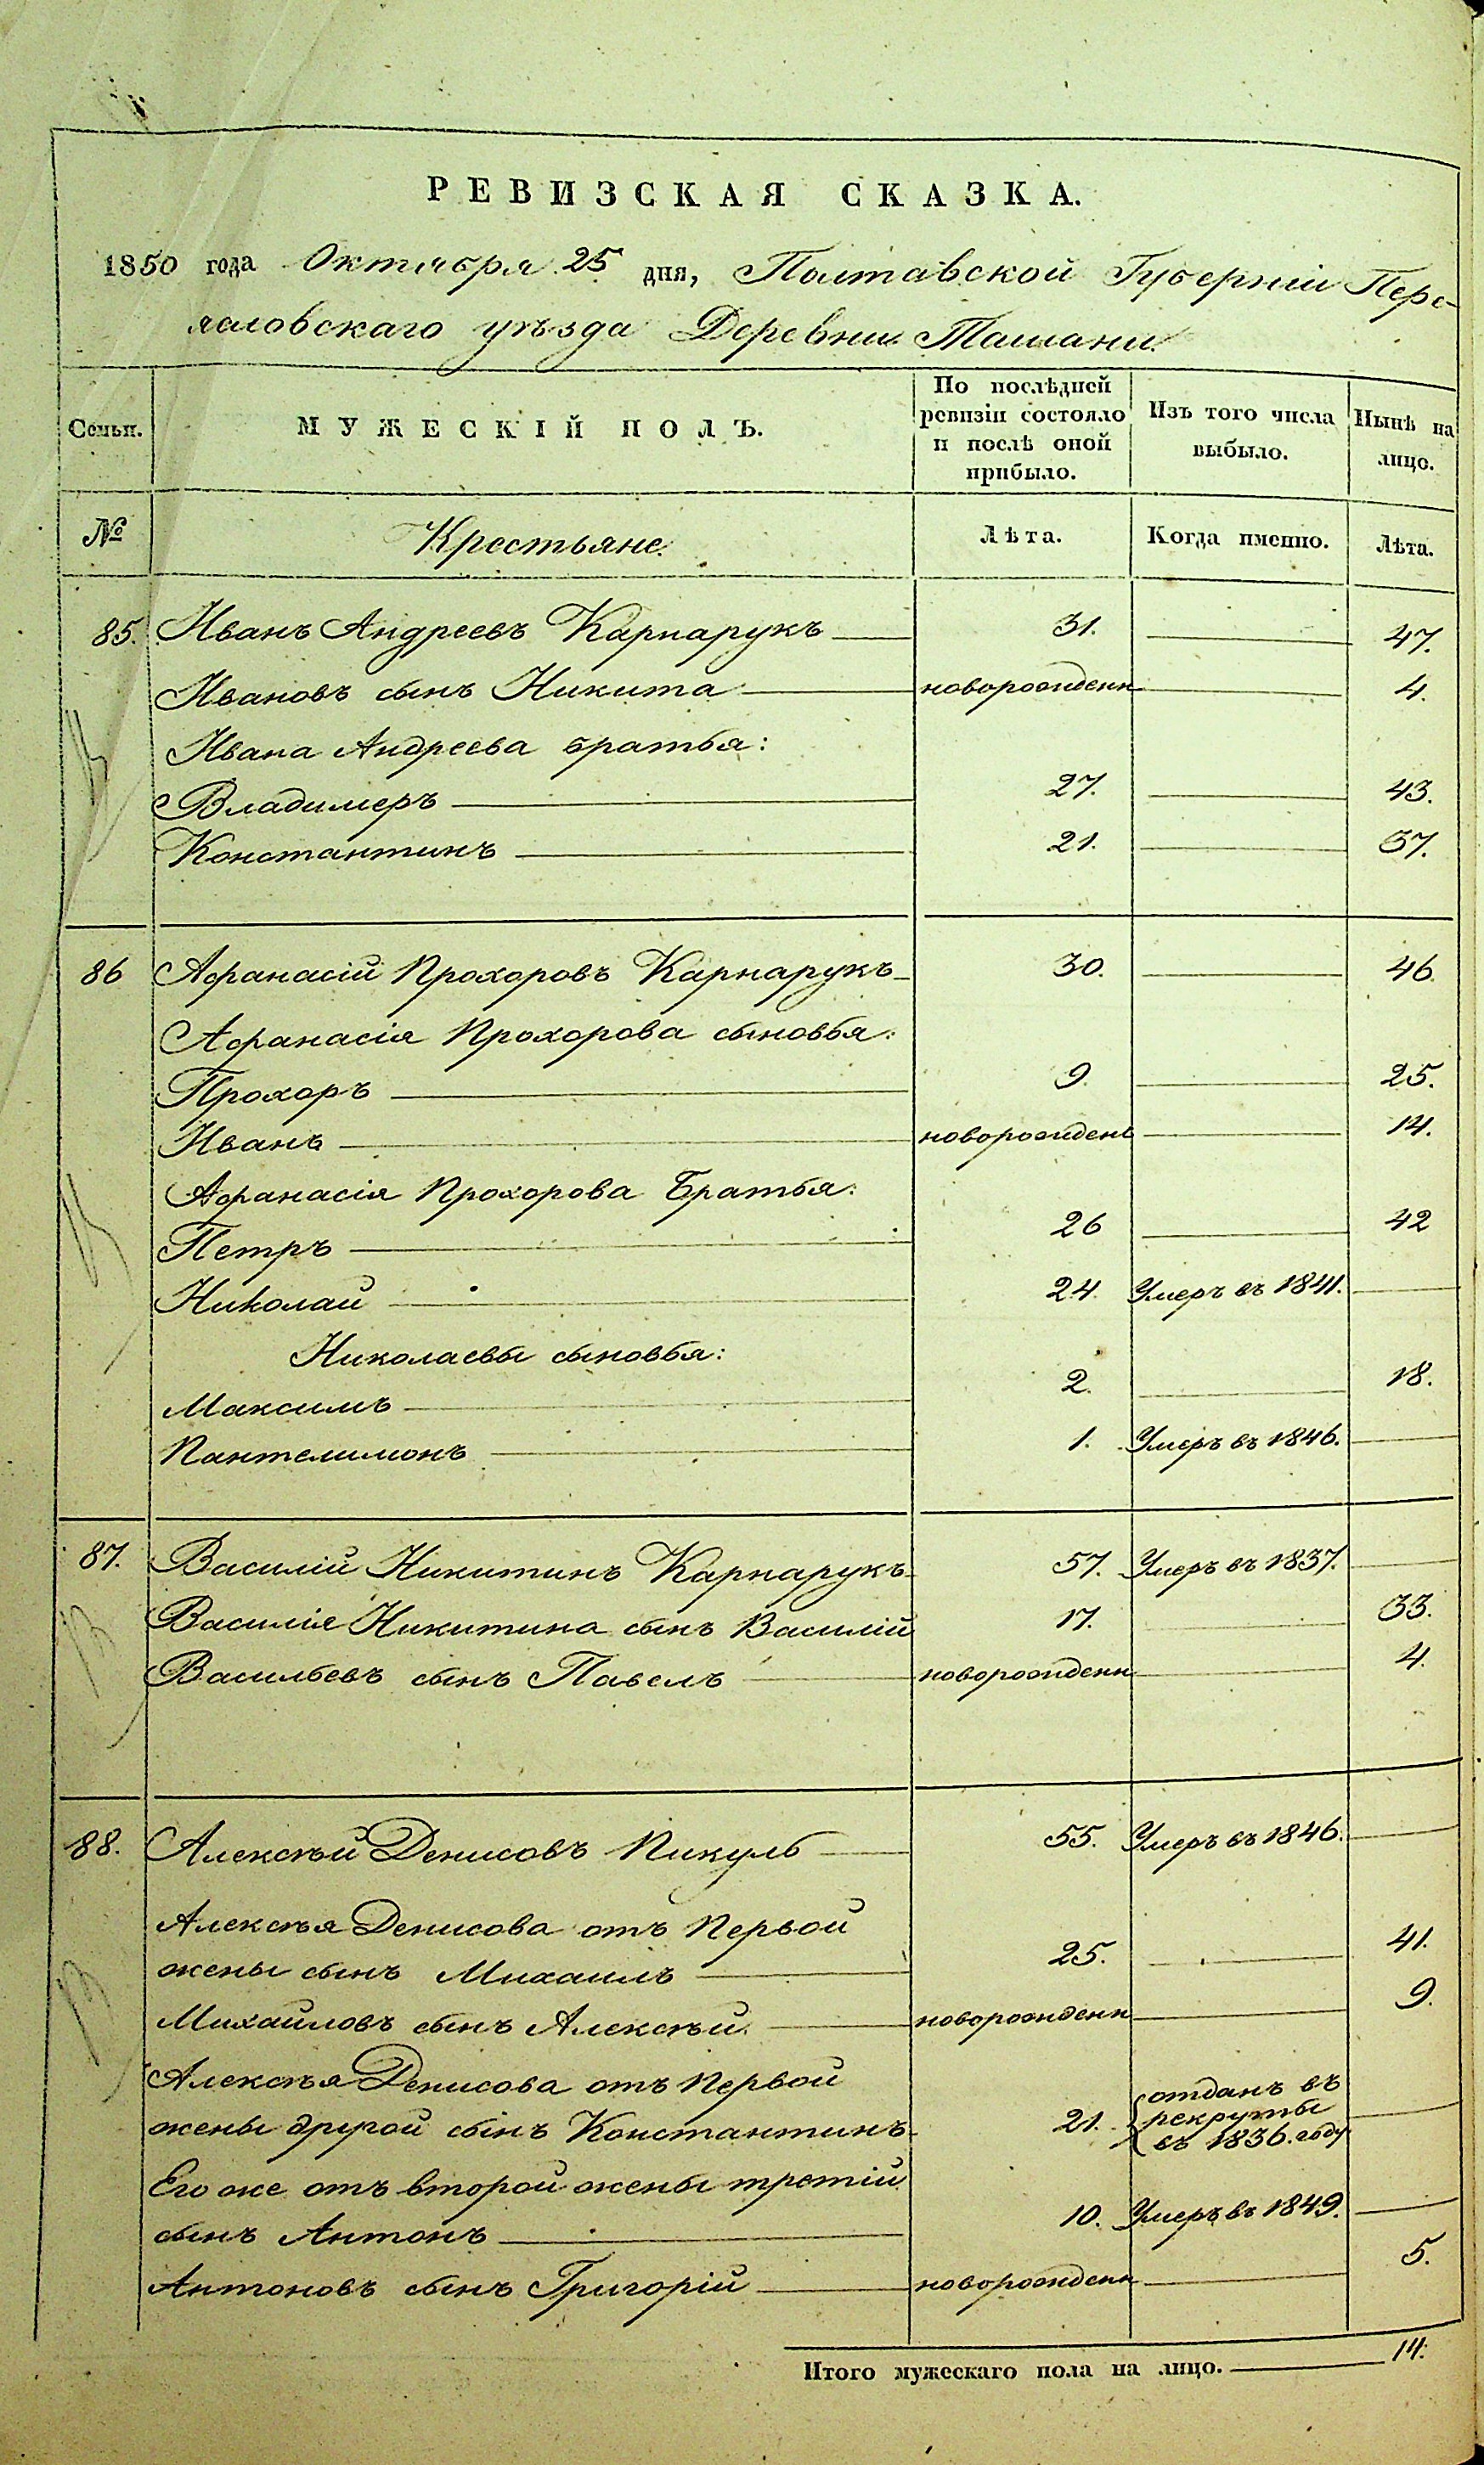 РЕВИЗСКАЯ СКАЗКА.
1850 года Октября 25 дня, Полтавской Губерніи Пере-
яславскаго уѣзда Деревни Ташани.
Семьи.
МУЖЕСКІЙ ПОЛЪ.
По послѣдней
ревизіи состояло
и послѣ оной
прибыло.
Изъ того числа
выбыло.
Нынѣ на
лицо.
№ Крестьяне. Лѣта. Когда именно. Лѣта.
85. Иванъ Андреевъ Карнарукъ 31. 47.
Ивановъ сынъ Никита новорожденн 4.
Ивана Андреева братья:
Владимеръ 27. 43.
Константинъ 21. 37.
86 Афанасій Прохоровъ Карнарукъ 30. 46.
Афанасія Прохорова сыновья:
Прохоръ 9. 25.
Иванъ новорожден 14.
Афанасія Прохорова Братья:
Петръ 26 42
Николай 24. Умеръ въ 1841.
Николаевы сыновья:
Максимъ 2. 18.
Пантелимонъ 1. Умеръ въ 1846.
87. Василій Никитинъ Карнарукъ 57. Умеръ въ 1837.
Василія Никитина сынъ Василій 17. 33.
Васильевъ сынъ Павелъ новорожденн 4.
88. Алексѣй Денисовъ Пикуль 55. Умеръ въ 1846.
Алексѣя Денисова отъ Первой
жены сынъ Михаилъ 25. 41.
Михайловъ сынъ Алексѣй. новорожденн 9.
Алексѣя Денисова отъ Первой
жены другой сынъ Константинъ 21. отданъ въ
рекруты
въ 1836. году
Его же отъ второй жены третій
сынъ Антонъ 10. Умеръ въ 1849.
Антоновъ сынъ Григорій новорожденн 5.
Итого мужескаго пола на лицо. 14.